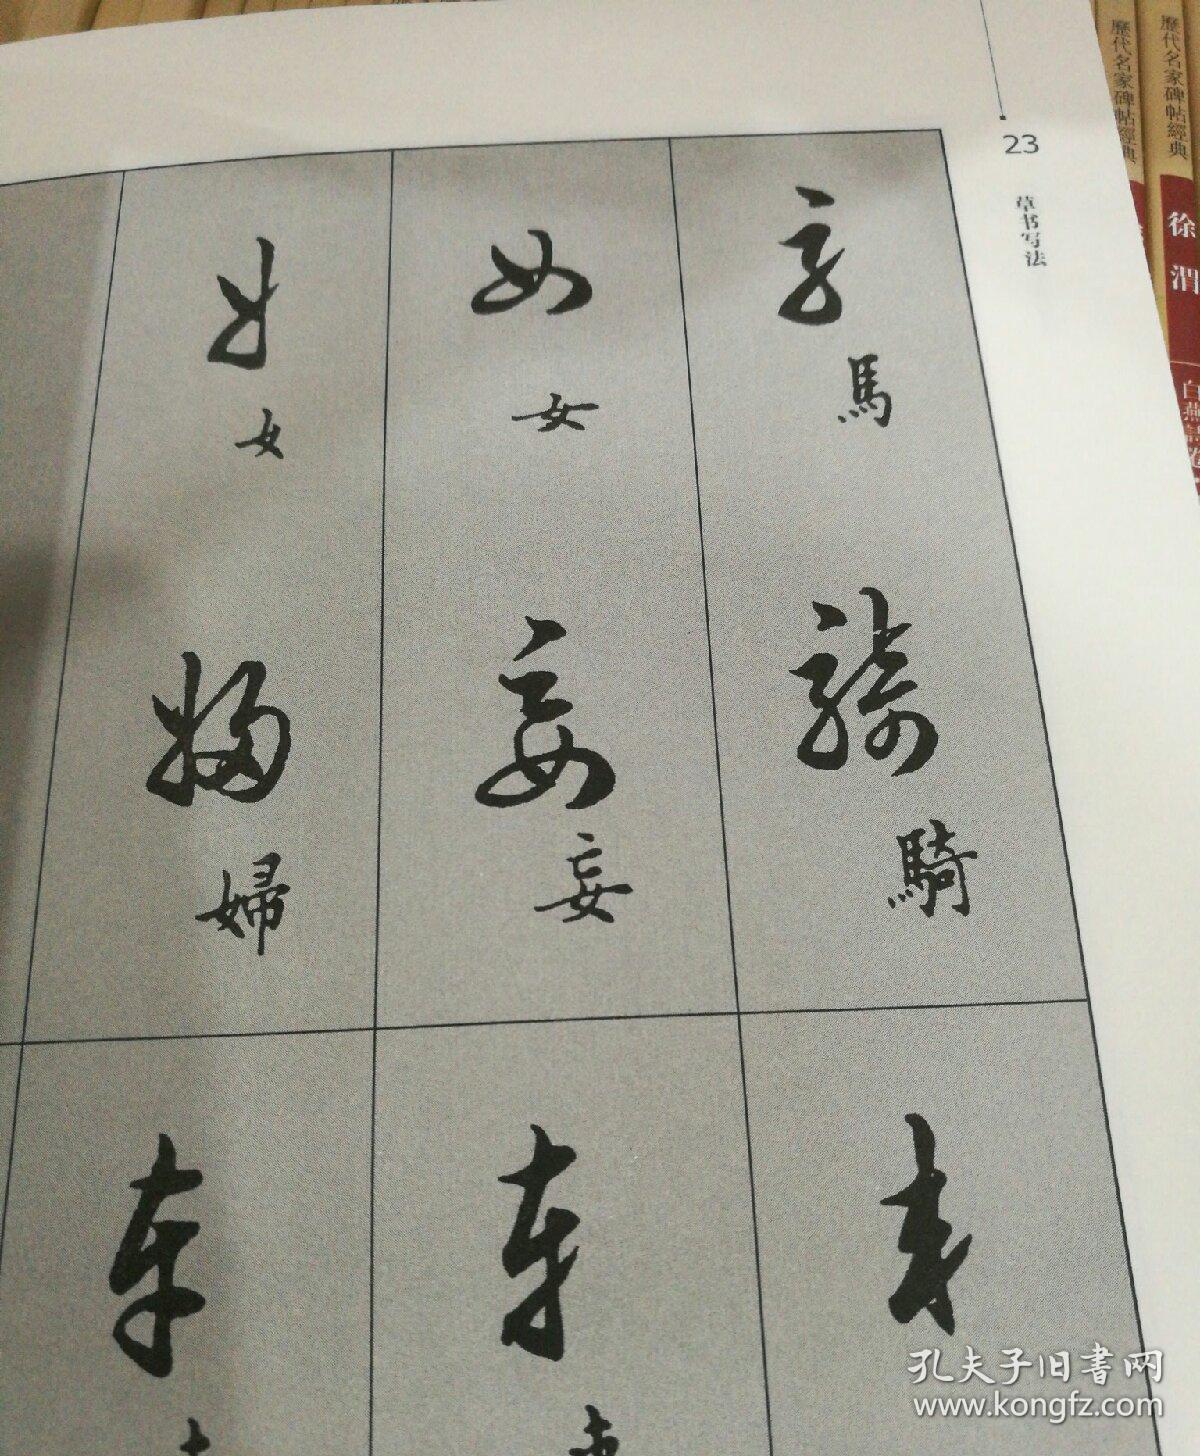 23
草书写法
馬
馬
騎
騎
女
女
妄
妄
女
女
婦
婦
歷代名家碑帖經典
歷代名家碑帖經典
徐渭
孔夫子旧書网
www.kongfz.com